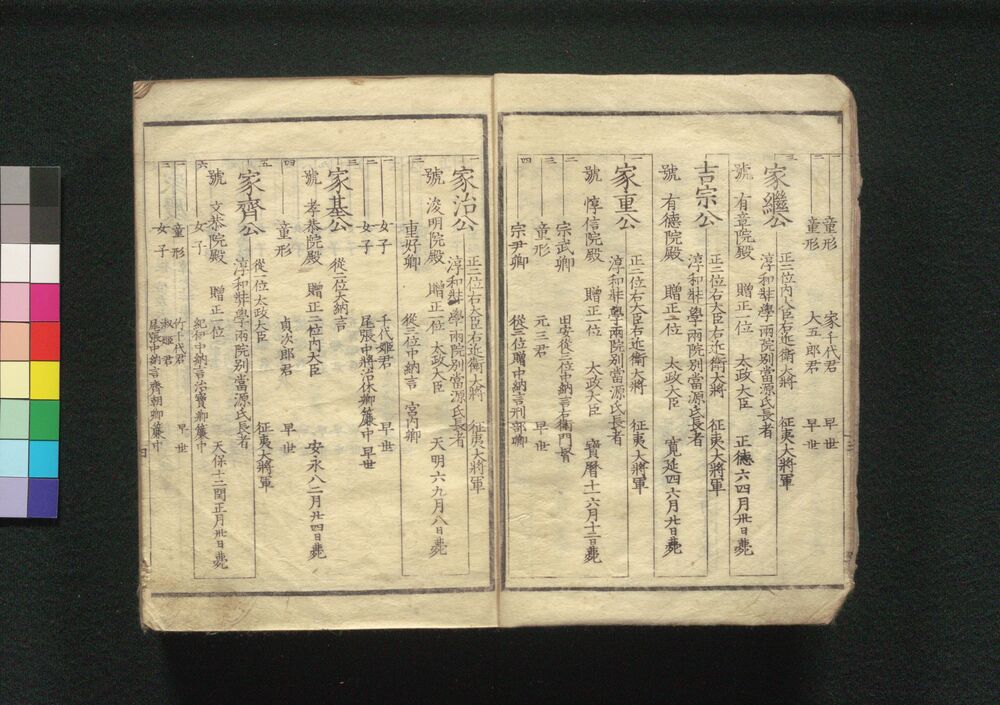 一 童形 家千代君 早世
二 童形 大五郎君 早世
三
家繼公 正二位内大臣右近衛大將 征夷大將軍
淳和奬學兩院別當源氏長者
號 有章院殿 贈正一位 太政大臣 正德六四月卅日薨
吉宗公 正二位右大臣右近衛大將 征夷大將軍
淳和奬學兩院別當源氏長者
號 有德院殿 贈正一位 太政大臣 寬延四六月廿日薨
一
家重公 正二位右大臣右近衛大將 征夷大將軍
淳和奬學兩院別當源氏長者
號 惇信院殿 贈正一位 太政大臣 寶曆十一六月十二日薨
二 宗武卿 田安從三位中納言右衛門督
三 童形 元三君 早世
四 宗尹卿 從三位贈中納言刑部卿
一
家治公 正二位右大臣右近衛大將 征夷大將軍
淳和奬學兩院別當源氏長者
號 浚明院殿 贈正一位 太政大臣 天明六九月八日薨
二 重好卿 從三位中納言 宮内卿
一 女子 千代姫君 早世
二 女子 尾張中將治休卿簾中 早世
三
家基公 從二位大納言
號 孝恭院殿 贈正二位内大臣 安永八二月廿四日薨
四 童形 貞次郎君 早世
五
家齊公 從一位太政大臣 征夷大將軍
淳和奬學兩院別當源氏長者
號 文恭院殿 贈正一位 天保十二閏正月卅日薨
六 女子 紀伊中納言治寶卿簾中
一 童形 竹千代君 早世
二 女子 淑姫君
尾張中納言齊朝卿簾中